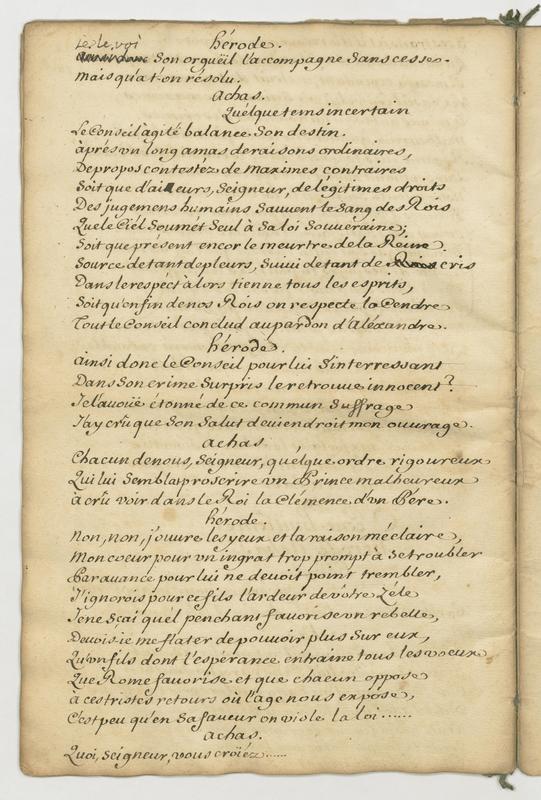 hérode.
je le voi
Son orgueil l'accompagne Sans cesse.
mais qu'a t-on résolu.
achas.
Quélque tems incertain
Le Conseil agité balance Son destin.
àprés vn long amas de raisons ordinaires,
De propos contestéz de maximes contraires
Soit que d'ailleurs, Seigneur, de légitimes droits
Des jugemens humains Sauvent le Sang des Rois
Que le Ciel Soumét Seul à Sa loi Souveraine;
Soit que présent encor le meurtre de la Reine
Source de tant de pleurs, Suivi de tant de cris
Dans le respect àlors tienne tous les esprits,
Soit qu'enfin de nos Rois on respecte la Cendre
Tout le Conseil conclud au pardon d'Aléxandre.
hérode.
ainsi donc le Conseil pour lui S'interressant
Dans Son crime Surpris le retrouve innocent?
Je l'avoüe étonné de ce commun Suffrage
J'ay crû que Son Salut deviendroit mon ouvrage.
achas
Chacun de nous, Seigneur, quélque ordre rigoureux
Qui lui Semblat proscrire vn Prince malheureux
à crû voir dans le Roi la Clémence d'vn Pére.
hérode.
Non, non, j'ouvre les yeux et la raison m'éclaire,
Mon coeur pour vn ingrat trop prompt à Se troubler
Par avance pour lui ne devoit point trembler,
J'ignorois pour ce fils l'ardeur de votre Zéle
Je ne Sçai quél penchant favorise vn rebelle,
Devois-je me flater de pouvoir plus Sur eux,
Qu'vn fils dont l'espérance entraine tous les voeux
Que Rome favorise et que chacun oppose
à ces tristes retours où l'age nous expose,
C'est peu qu'en Sa faveur on viole la loi......
achas.
Quoi, Seigneur, vous croïéz......